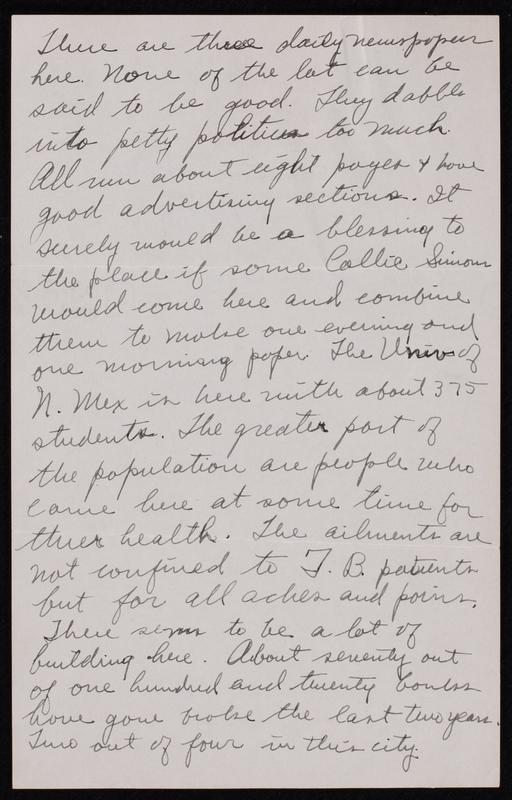 There are three daily newspapers
here. None of the lot can be
said to be good. They dabble
into petty politics too much.
All run about eight pages & have
good advertising sections. It
surely would be a blessing to
the place if some Callie Simon
would come here and combine
them to make one evening and
one morning paper. The Univ of
N. Mex is here with about 375
students. The greater part of
the population are people who
came here at some time for
their health. The ailments are
not confined to T. B. patients
but for all aches and pains.
There seems to be a lot of
building here. About seventy out
of one hundred and twenty banks
have gone broke the last two years.
Two out of four in this city.